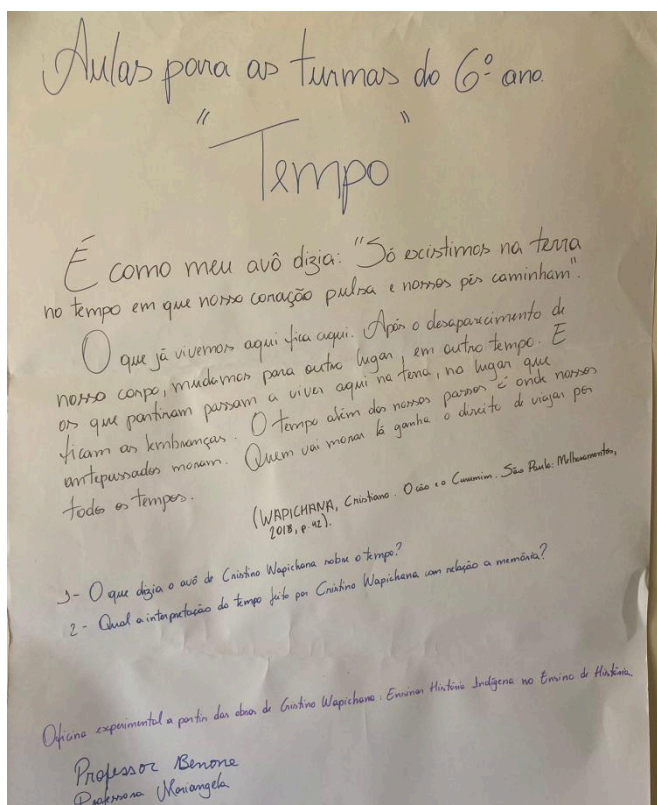 Aulas para as turmas do 6º ano.
"Tempo"
É como meu avô dizia: "Só existimos na terra
no tempo em que nosso coração pulsa e nossos pés caminham".
O que já vivemos aqui fica aqui. Após o desaparecimento de
nosso corpo, mudamos para outro lugar, em outro tempo. E
os que partiram passam a viver aqui na terra, no lugar que
ficam as lembranças. O tempo além dos nossos passos é onde nossos
antepassados moram. Quem vai morar lá ganha o direito de viajar por
todos os tempos.
(WAPICHANA, Cristiano. O cão e o Curumim. São Paulo: Melhoramentos,
2018, p.42).
1- O que dizia o avô de Cristino Wapichana sobre o tempo?
2- Qual a interpretação do tempo feito por Cristino Wapichana com relação a memória?
Oficina experimental a partir das obras de Cristino Wapichana. Ensinar História Indígena no Ensino de História.
Professor Benone
Professora Mariangela